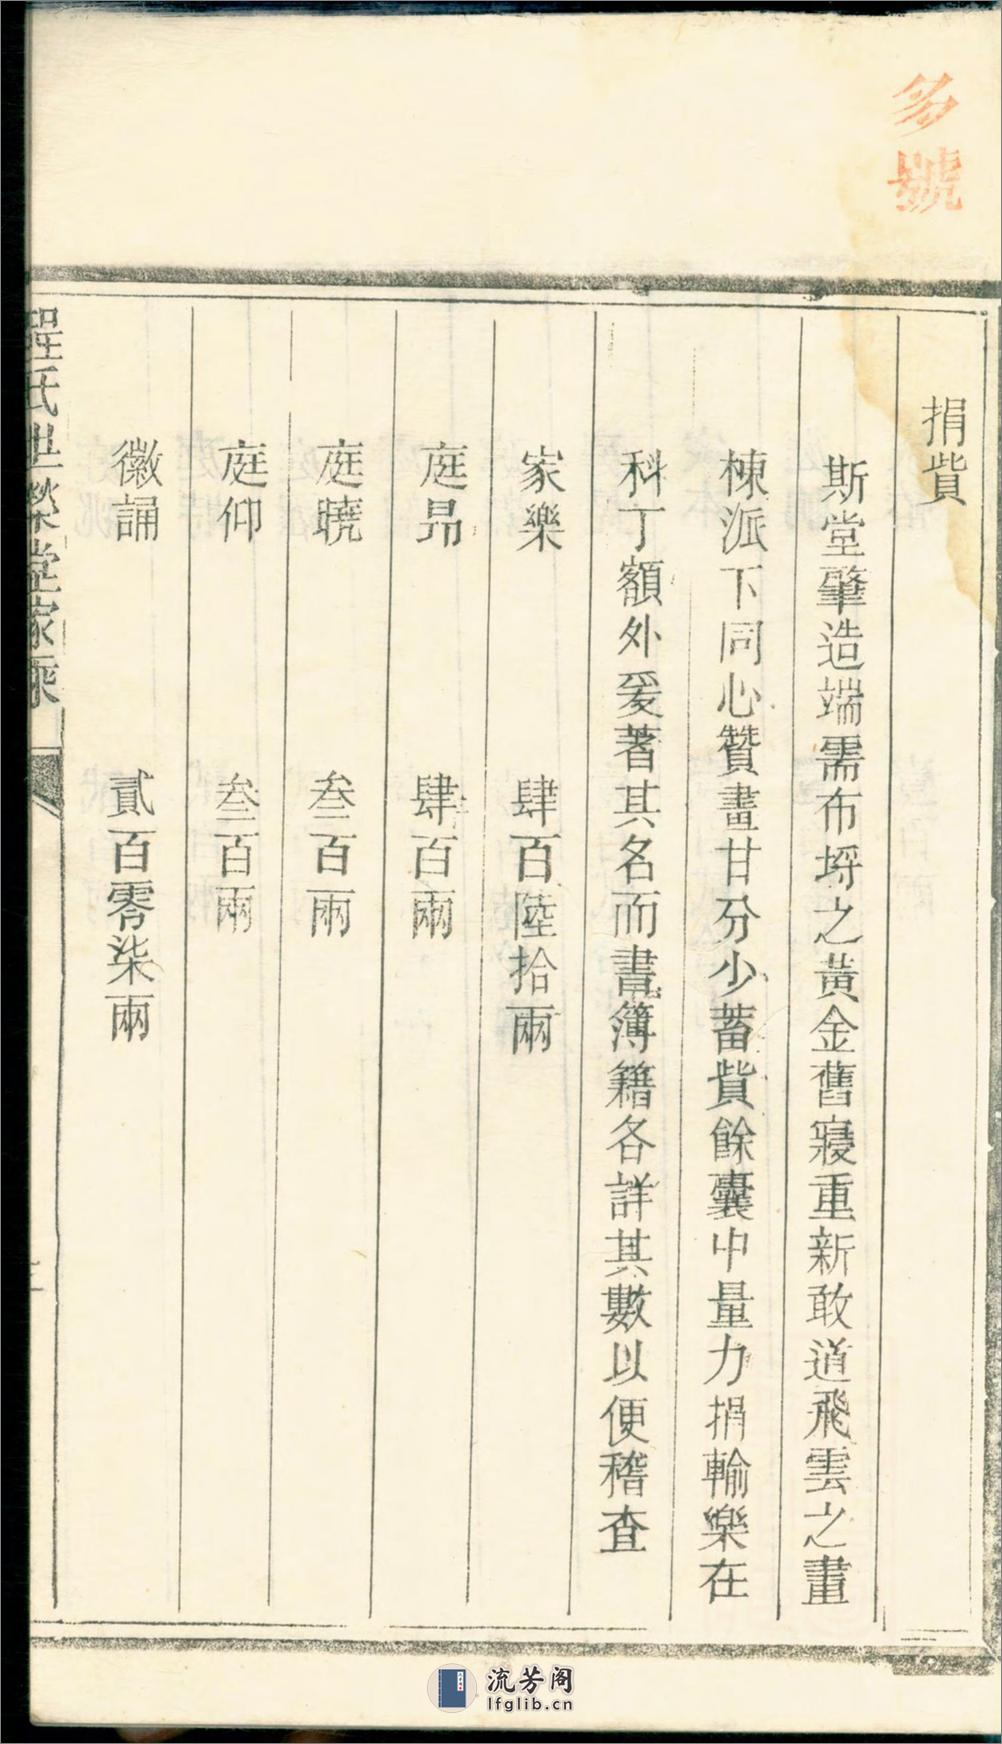 多號
捐貲
斯堂肇造端需布埒之黃金舊寢重新敢道飛雲之畫
棟派下同心贊畫甘分少蓄貲餘囊中量力捐輸樂在
科丁額外爰著其名而書簿籍各詳其數以便稽查
家樂 肆百陸拾兩
庭昻 肆百兩
庭曉 叁百兩
庭仰 叁百兩
徽誦 貳百零柒兩
程氏世榮堂家乘
流芳阁
lfglib.cn